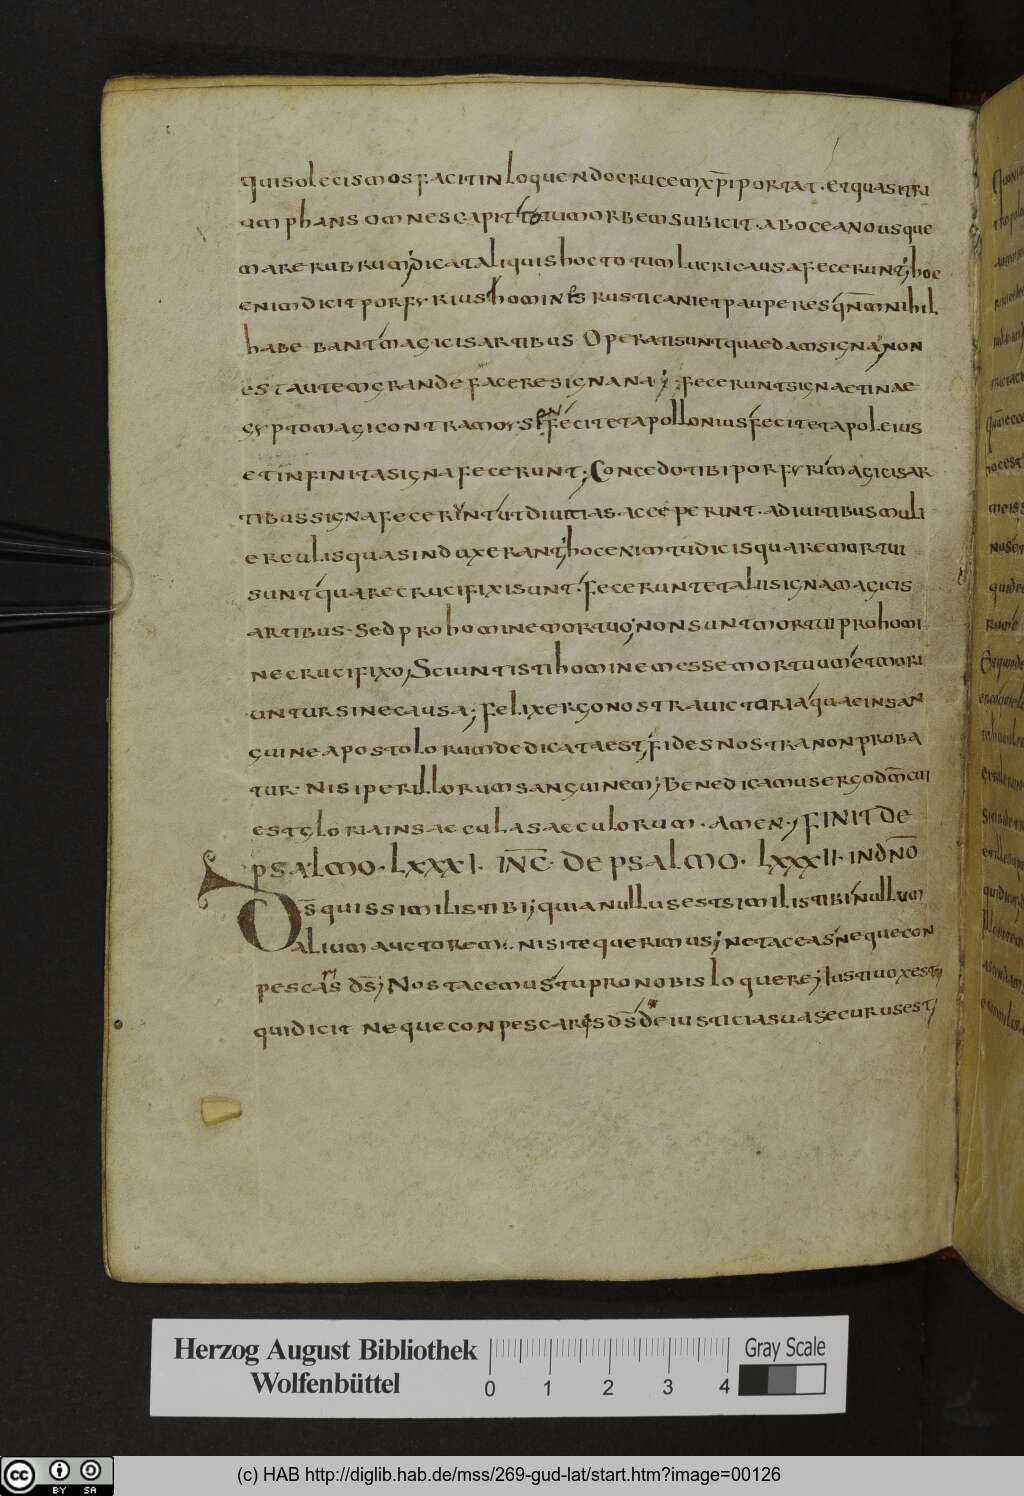 qui solecismos facit in loquendo crucem xp̄i portat · et quasi tri
umphans omnes capit totum orbem subicit · ab oceano usque
mare rubrum; dicat aliquis hoc totum lucri causa fecerunt; hoc
enim dicit porfyrius homines rusticani et pauperes qn̄m nihil
habebant magicis artibus operati sunt quaedam signa; non
est autem grande facere signa na; fecerunt signa et in ae
gypto magi contra moysen fecit et apollonius fecit et apoleius
et infinita signa fecerunt; Concedo tibi porfyri magicis ar
tibus signa fecerunt ut diuitias · acciperint · a diuitibus muli
erculis quas induxerant; hoc enim tu dicis quare mortui
sunt quare crucifixi sunt · fecerunt et alii signa magicis
artibus · sed pro homine mortuo; non sunt mortui pro homi
ne crucifixo; Sciunt isti hominem esse mortuum et mori
untur sine causa; felix ergo nostra uictoria quae in san
guine apostolorum dedicata est; fides nostra non proba
tur nisi per illorum sanguinem; Benedicamus ergo dm̄ cui
est gloria in saecula saeculorum · amen; FINIT DE
PSALMO · LXXXI · INC̄ · DE PSALMO · LXXXII · IN DN̄O
Ds̄ quis similis tibi; quia nullus est similis tibi nullum
alium auctorem · nisi te querimus; ne taceas neque con
pescaris ds̄; Nos tacemus tu pro nobis loquere; Iusti uox est;
qui dicit neque conpescaris ds̄ de iusticia sua securus est;
Herzog August Bibliothek
Wolfenbüttel
0 1 2 3 4
Gray Scale
cc BY SA
(c) HAB http://diglib.hab.de/mss/269-gud-lat/start.htm?image=00126